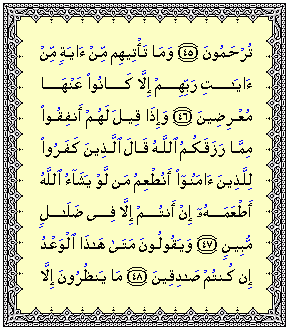 تُرْحَمُونَ ٤٥ وَمَا تَأْتِيهِم مِّنْ ءَايَةٍ مِّنْ
ءَايَـٰتِ رَبِّهِمْ إِلَّا كَانُوا۟ عَنْهَا
مُعْرِضِينَ ٤٦ وَإِذَا قِيلَ لَهُمْ أَنفِقُوا۟
مِمَّا رَزَقَكُمُ ٱللَّهُ قَالَ ٱلَّذِينَ كَفَرُوا۟
لِلَّذِينَ ءَامَنُوٓا۟ أَنُطْعِمُ مَن لَّوْ يَشَآءُ ٱللَّهُ
أَطْعَمَهُۥٓ إِنْ أَنتُمْ إِلَّا فِى ضَلَـٰلٍ
مُّبِينٍ ٤٧ وَيَقُولُونَ مَتَىٰ هَـٰذَا ٱلْوَعْدُ
إِن كُنتُمْ صَـٰدِقِينَ ٤٨ مَا يَنظُرُونَ إِلَّا